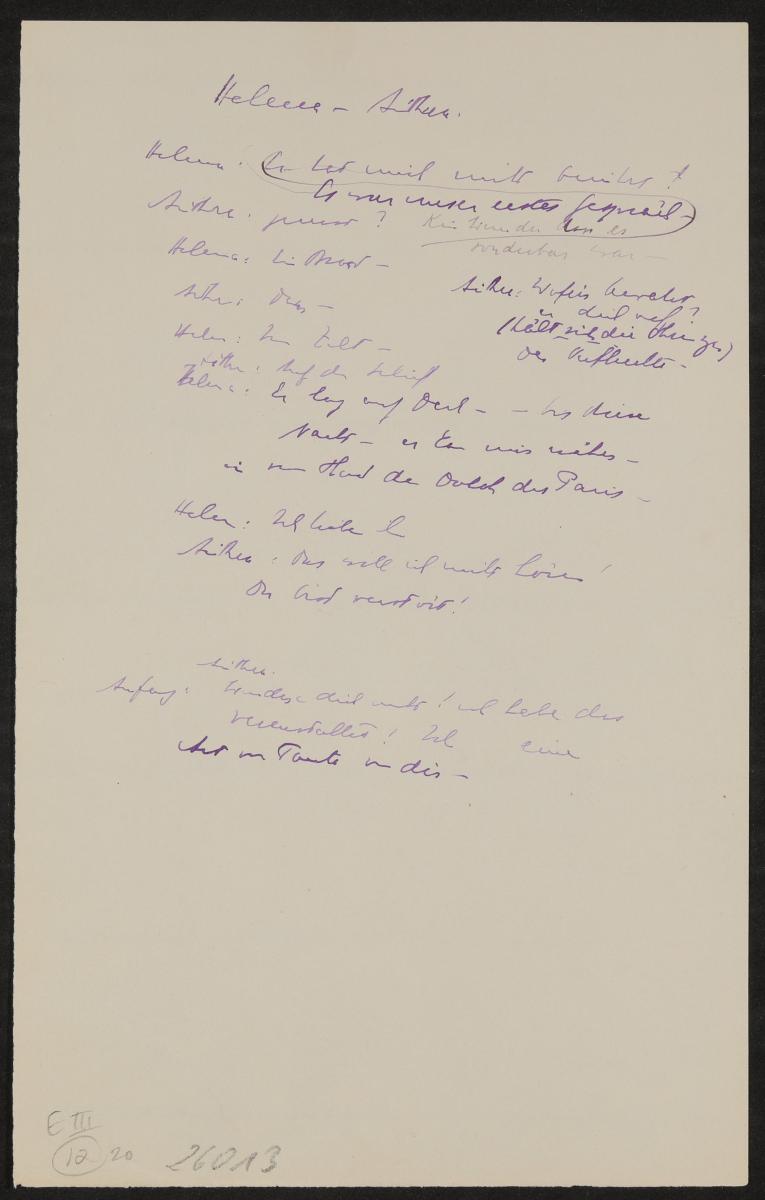 Helena – Aithra.
Helena: Er hat mich nicht berührt!
Es war unser erstes Gespräch –
Aithra: zuvor? Kein Wunder dass es
sonderbar war –
Helena: Im Boot –
Aithra: Wofür bewahrt
er dich auf?
Aithra: Das –
(hält sich die Ohren zu)
Helen: Im Zelt –
Der Aufhellte –
Aithra: Auf dem Schiff
Helena: Er lag auf Deck – – bis diese
Nacht – er kam mir näher –
in der Hand den Dolch des Paris –
Helen: Ich habe
Aithra: Das will ich nicht hören!
Du bist verstört!
Aithra.
Anfang: Wundere dich nicht! ich habe das
veranstaltet! Ich eine
Art von Tante von dir –
E III
12 20 26013